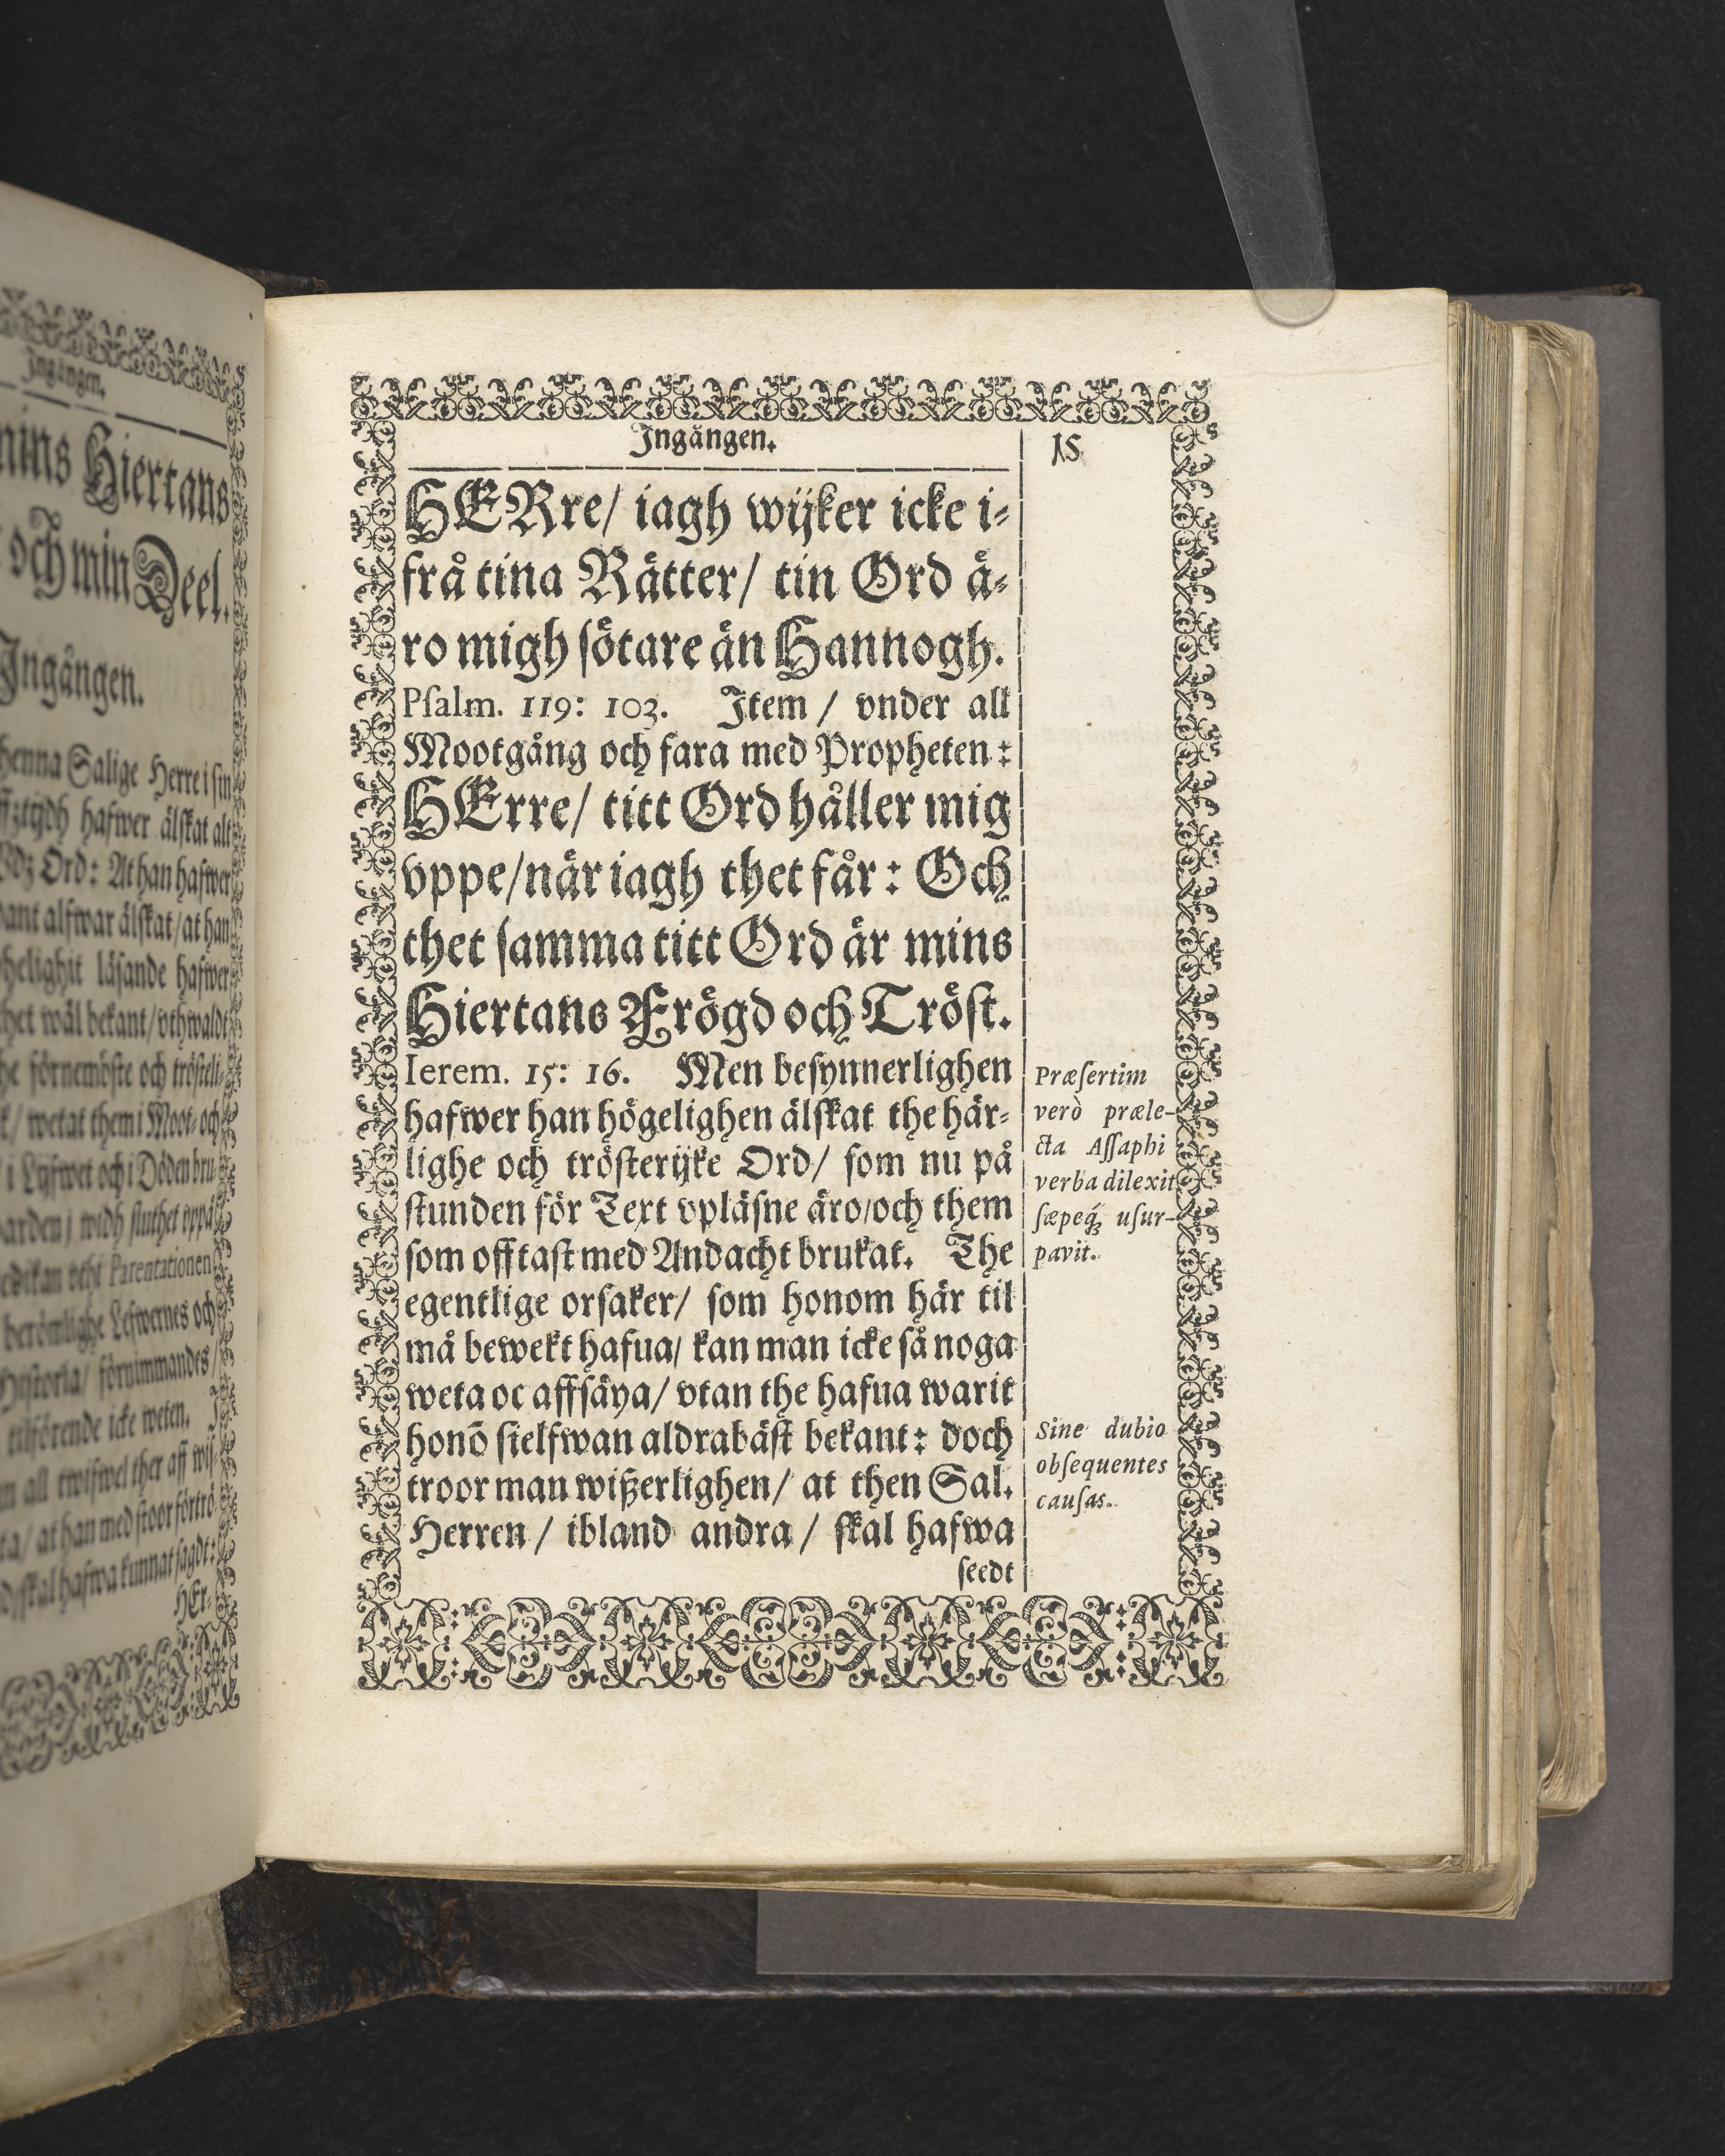 Ingången.
nins Hiertans
och min Deel.
Ingången.
henna Salige Herre i sin
hafwer älskat alt
Ord: At han hafwer
alfwar älskat/at han
läsande hafwer
wäl bekant/vthwaldt
förnemöste och trösteli-
wetat them i Moot- och
i Lijfwet och i Döden bru-
widh sluthet vppå
Parentationen
berömlighe Lefwernes och
förnimmandes
tilförende icke weten. J
all twifwel ther aff wiß-
at han med stoor förtrö-
skal hafwa kunnat sagdt:
HEr-
Ingången.
15
HERre/ iagh wijker icke i-
frå tina Rätter/ tin Ord ä-
ro migh sötare än Hannogh.
Psalm. 119: 103. Item / vnder all
Mootgång och fara med Propheten:
HErre/ titt Ord håller mig
vppe/när iagh thet får: Och
thet samma titt Ord är mins
Hiertans Frögd och Tröst.
Ierem. 15: 16. Men besynnerlighen
hafwer han högelighen älskat the här-
lighe och trösterijke Ord/ som nu på
stunden för Text vpläsne äro/och them
som offtast med Andacht brukat. The
egentlige orsaker/ som honom här til
må bewekt hafua/ kan man icke så noga
weta oc affsäya/ vtan the hafua warit
honō sielfwan aldrabäst bekant: doch
troor man wißerlighen/ at then Sal.
Herren / ibland andra / skal hafwa
seedt
Præsertim
verò præle-
cta Assaphi
verba dilexit
sæpeq́ꝫ usur-
pavit.
Sine dubio
obsequentes
causas.